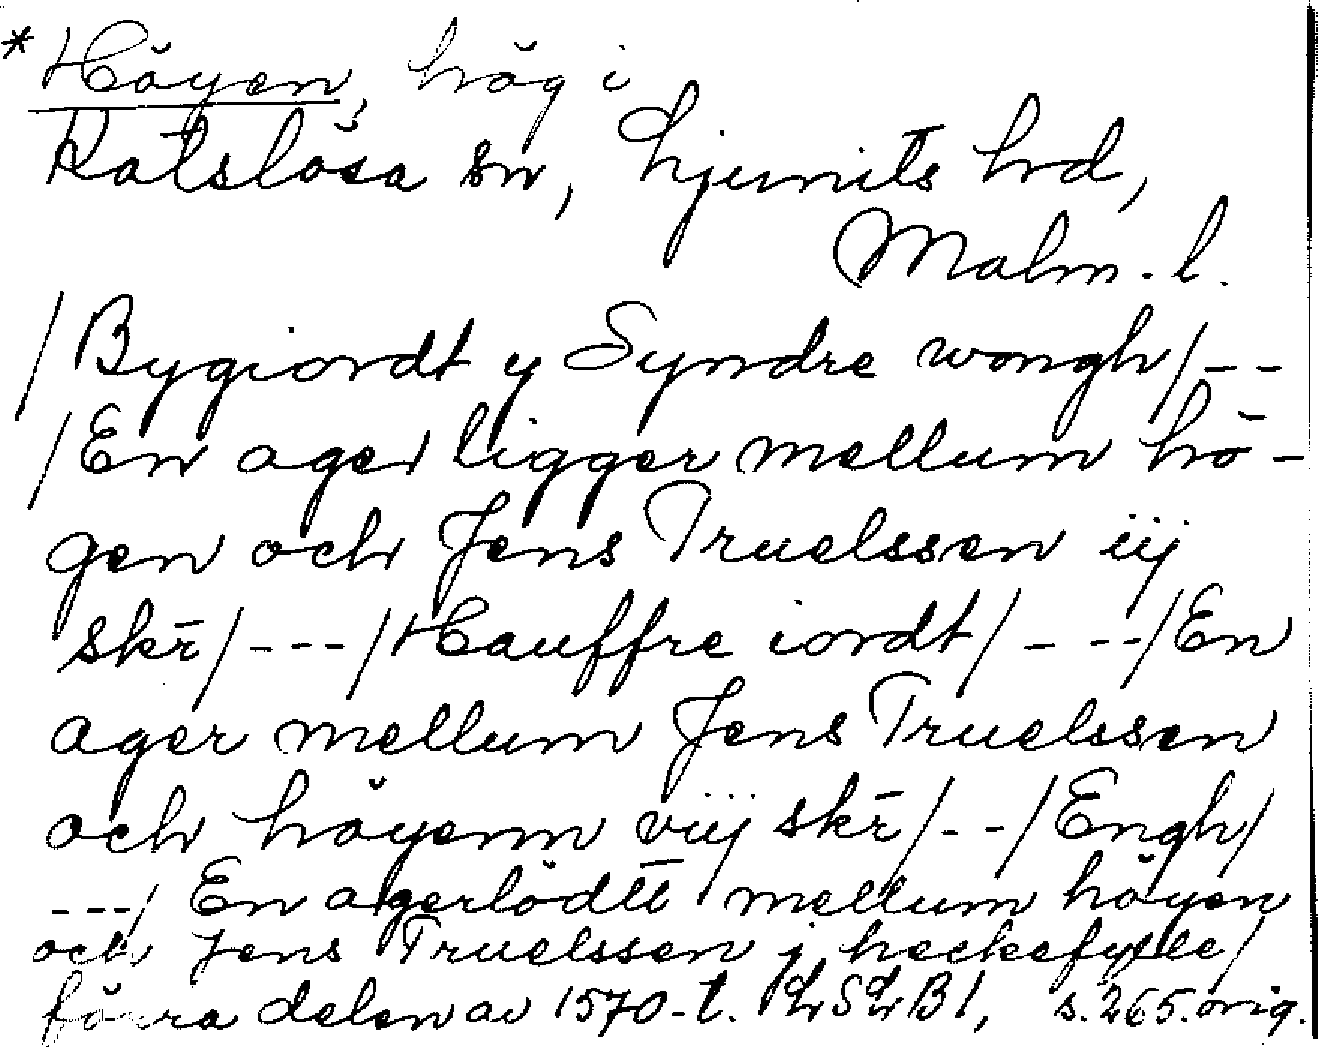 * Höyen, hög i
Katslösa sn, Ljunits hd,
Malm. l.
/Bygiordt y Syndre wongh/--
/En ager ligger mellum hö-
gen och Jens Truelssen iij
skr̄/---/Hauffre iordt/---/En
ager mellum Jens Truelssen
och höyenn viij skr̄/--/Engh/
---/ En agerlödtt mellum höyen
och Jens Truelssen j heckefylle/
förra delen av 1570-t. LSLB1, s. 265. orig.